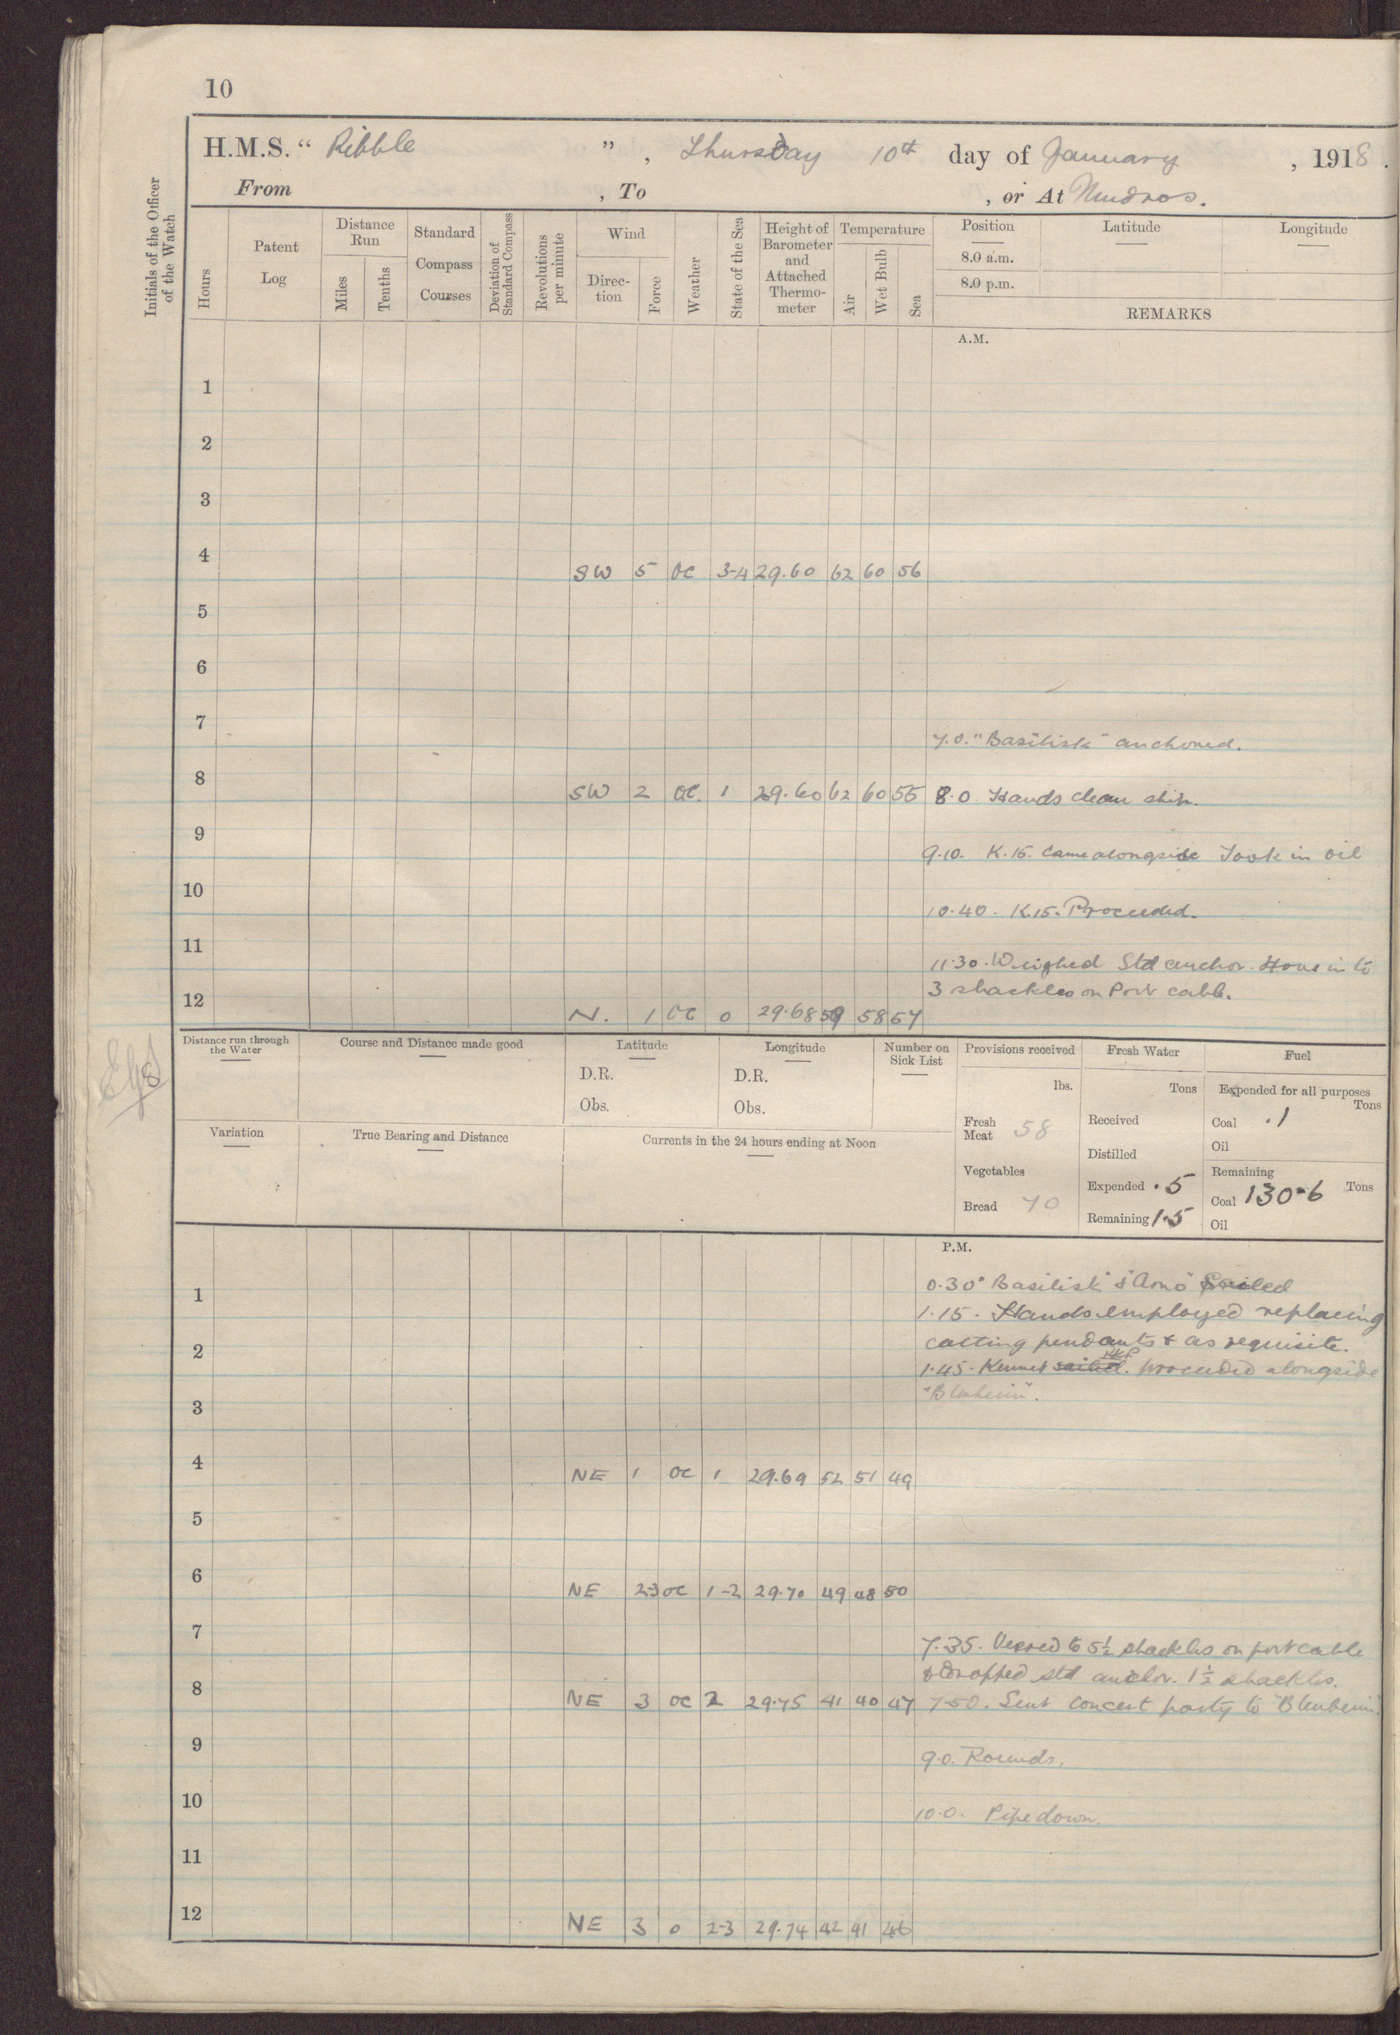 10
H.M.S. “ Ribble ” , Thursday 10th day of January , 1918 .
From , To , or At Mudros.
Initials of the Officer of the Watch
Hours
Patent Log
Distance Run
Miles
Tenths
Standard Compass Courses
Deviation of Standard Compass
Revolutions per minute
Wind
Direc- tion
Force
Weather
State of the Sea
Height of Barometer and Attached Thermo- meter
Temperature
Air
Wet Bulb
Sea
Position
8.0 a.m.
8.0 p.m.
Latitude
Longitude
REMARKS
A.M.
1
2
3
4 SW 5 oc 3-4 29.60 62 60 56
5
6
7
7.0. "Basilisk" anchored.
8 SW 2 oc. 1 29.60 62 60 55 8.0 Hands clean ship.
9
9.10. K.15. Came alongside Took in oil
10
10.40. K15. Proceeded.
11
11.30. Weighed Std anchor. Hove in to
3 shackles on Port cable.
12 N. 1 oc 0 29.68 59 58 57
Distance run through the Water
Course and Distance made good
Latitude
D.R.
Obs.
Longitude
D.R.
Obs.
Number on Sick List
Provisions received
lbs.
Fresh Meat 58
Vegetables
Bread 70
Fresh Water
Tons
Received
Distilled
Expended .5
Remaining 1.5
Fuel
Expended for all purposes
Tons
Coal .1
Oil
Remaining
Coal 130.6 Tons
Oil
Variation
True Bearing and Distance
Currents in the 24 hours ending at Noon
P.M.
0.30 "Basilisk" & "Arno" Sailed
1
1.15. Hands employed replacing
2
catting pendants & as requisite.
1.45. Kennet sailed. proceeded alongside
"Blenheim".
3
4 NE 1 oc 1 29.69 52 51 49
5
6 NE 2-3 oc 1-2 29.70 49 48 50
7
7.35. Veered to 5½ shackles on port cable
& dropped std anchor. 1½ shackles.
8 NE 3 oc 2 29.75 41 40 47 7.50. Sent concert party to "Blenheim".
9
9.0. Rounds.
10
10.0. Pipe down.
11
12 NE 3 0 2-3 29.74 42 41 46